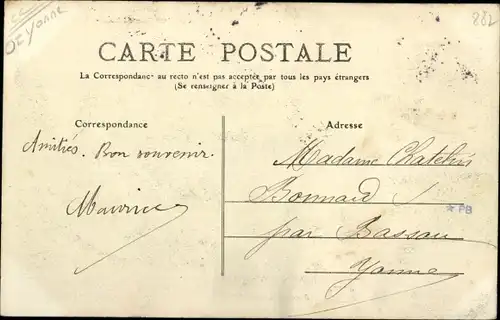 Yonne
882
CARTE POSTALE
La Correspondance au recto n'est pas acceptée par tous les pays étrangers
(Se renseigner à la Poste)
Correspondance
Adresse
Amitiés. Bon souvenir.
Maurice
Madame Chatelus
Bonnard
★ PB
par Bassou
Yonne